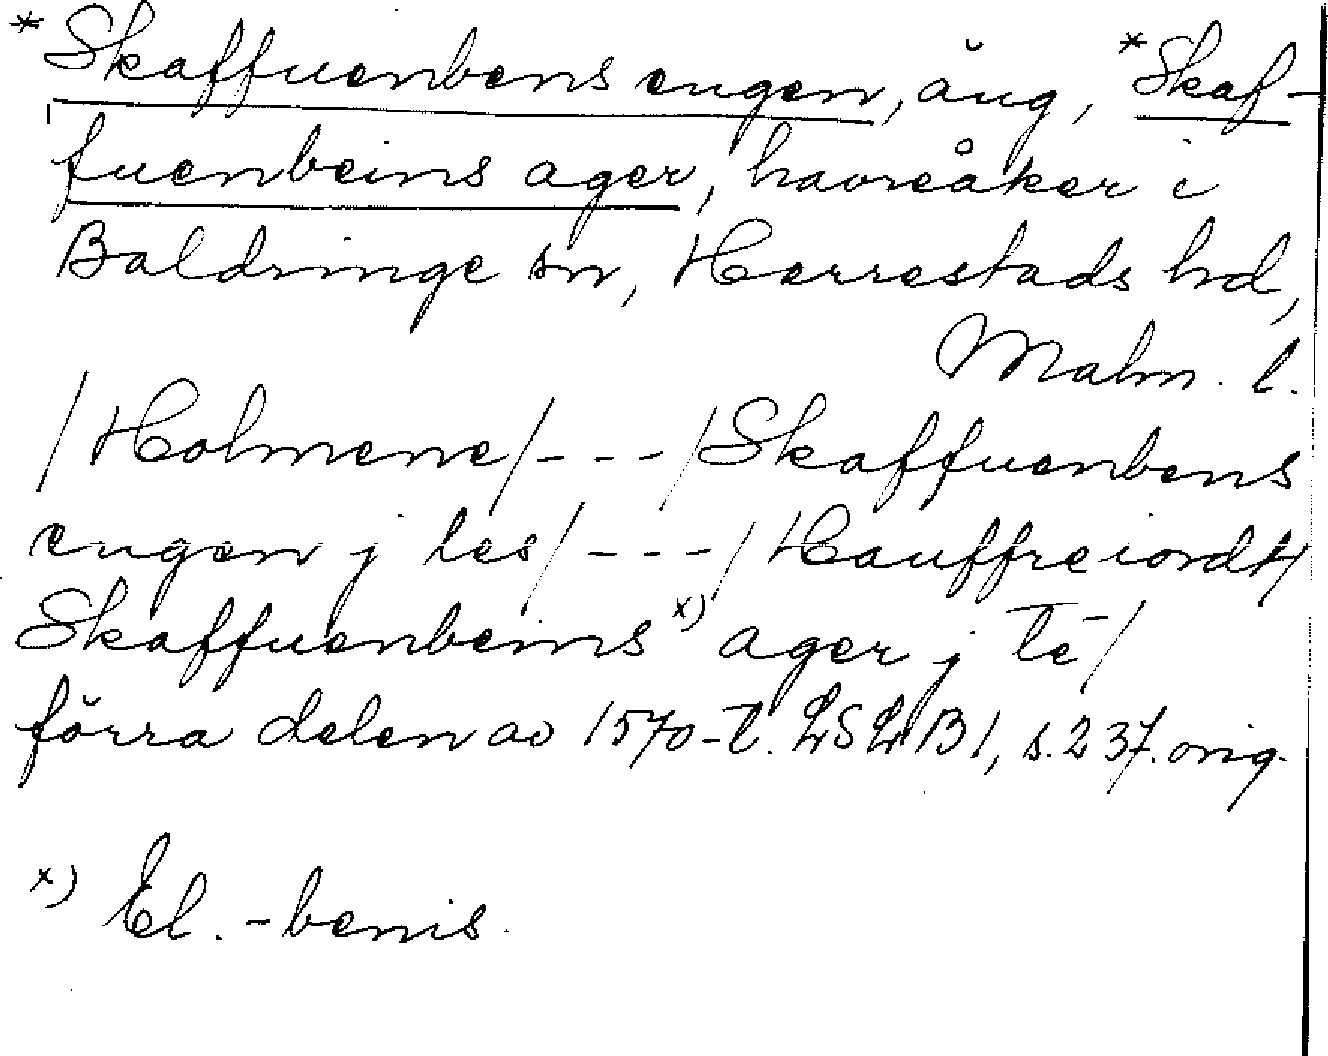 *Skaffuenbens engen, äng, *Skaf-
fuenbeins ager, havreåker i
Baldringe sn, Herrestads hd,
Malm. l.
/Holmene/---/Skaffuenbens
engen j les/---/Hauffreiordt/
Skaffuenbeins x) ager j lē/
förra delen av 1570-t. LSLB1, s. 237. orig.
x) El. -benis.